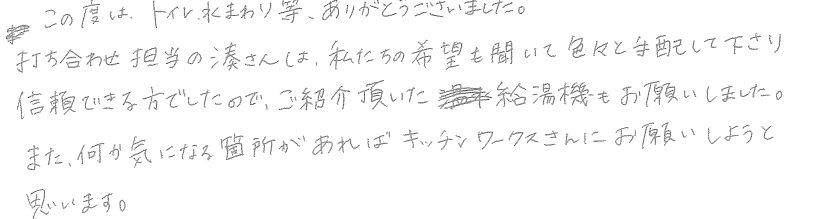 この度は、トイレ、水まわり等、ありがとうございました。
打ち合わせ担当の湊さんは、私たちの希望も聞いて色々と手配して下さり
信頼できる方でしたので、ご紹介頂いた給湯機もお願いしました。
また、何か気になる箇所があればキッチンワークスさんにお願いしようと
思います。